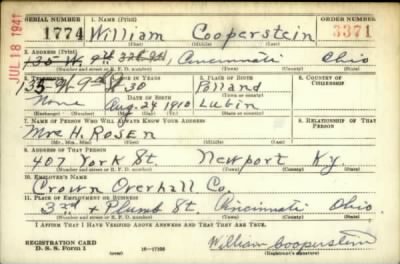 SERIAL NUMBER 1. NAME (Print) ORDER NUMBER
1774 William Cooperstein 3371
(First) (Middle) (Last)
JUL 18 1941
2. ADDRESS (Print)
135 W. 9th Cincinnati Ohio
(Number and street or R. F. D. number) (Town) (County) (State)
3. TELEPHONE 4. AGE IN YEARS 5. PLACE OF BIRTH 6. COUNTRY OF CITIZENSHIP
135 W. 9th St 30 Poland
DATE OF BIRTH (Town or county)
None Aug. 24 1910 Lubin
(Exchange) (Number) (Mo.) (Day) (Yr.) (State or country)
7. NAME OF PERSON WHO WILL ALWAYS KNOW YOUR ADDRESS 8. RELATIONSHIP OF THAT PERSON
Mrs H. Rosen
(Mr., Mrs., Miss) (First) (Middle) (Last)
9. ADDRESS OF THAT PERSON
407 York St. Newport Ky.
(Number and street or R. F. D. number) (Town) (County) (State)
10. EMPLOYER'S NAME
Crown Overhall Co.
11. PLACE OF EMPLOYMENT OR BUSINESS
3rd + Plumb St. Cincinnati Ohio.
(Number and street or R. F. D. number) (Town) (County) (State)
I AFFIRM THAT I HAVE VERIFIED ABOVE ANSWERS AND THAT THEY ARE TRUE.
REGISTRATION CARD
D. S. S. Form 1 16-17105 William Cooperstein
(Registrant's signature)